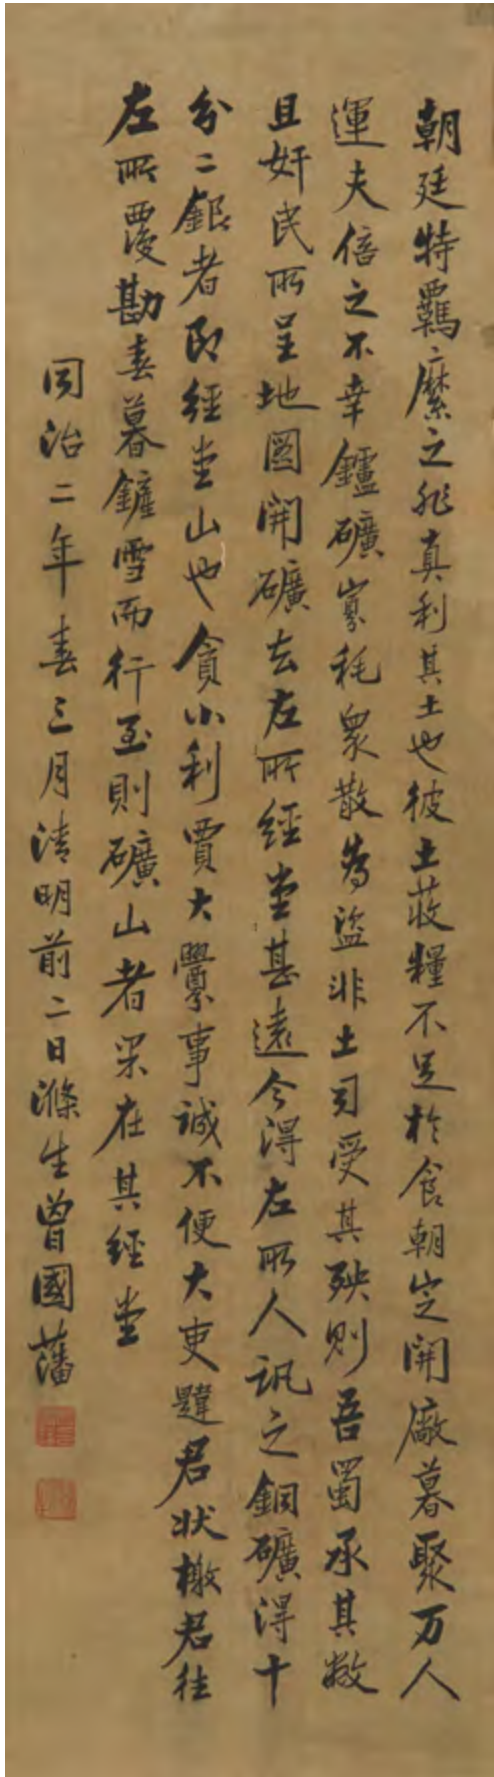 朝廷特羈縻之非真利其土也彼土莜糧不足於食朝定開廠暮聚万人
運夫倍之不幸鑪礦衰耗衆散為盜非土司受其殃則吾蜀承其敝
且奸民所呈地圖開礦去左所經堂甚遠今得左所人訊之銅礦得十
分二銀者即經堂山也貪小利賈大釁事誠不便大吏韙君狀檄君往
左所覆勘春暮鏟雪而行至則礦山者果在其經堂
同治二年春三月清明前二日滌生曾國藩